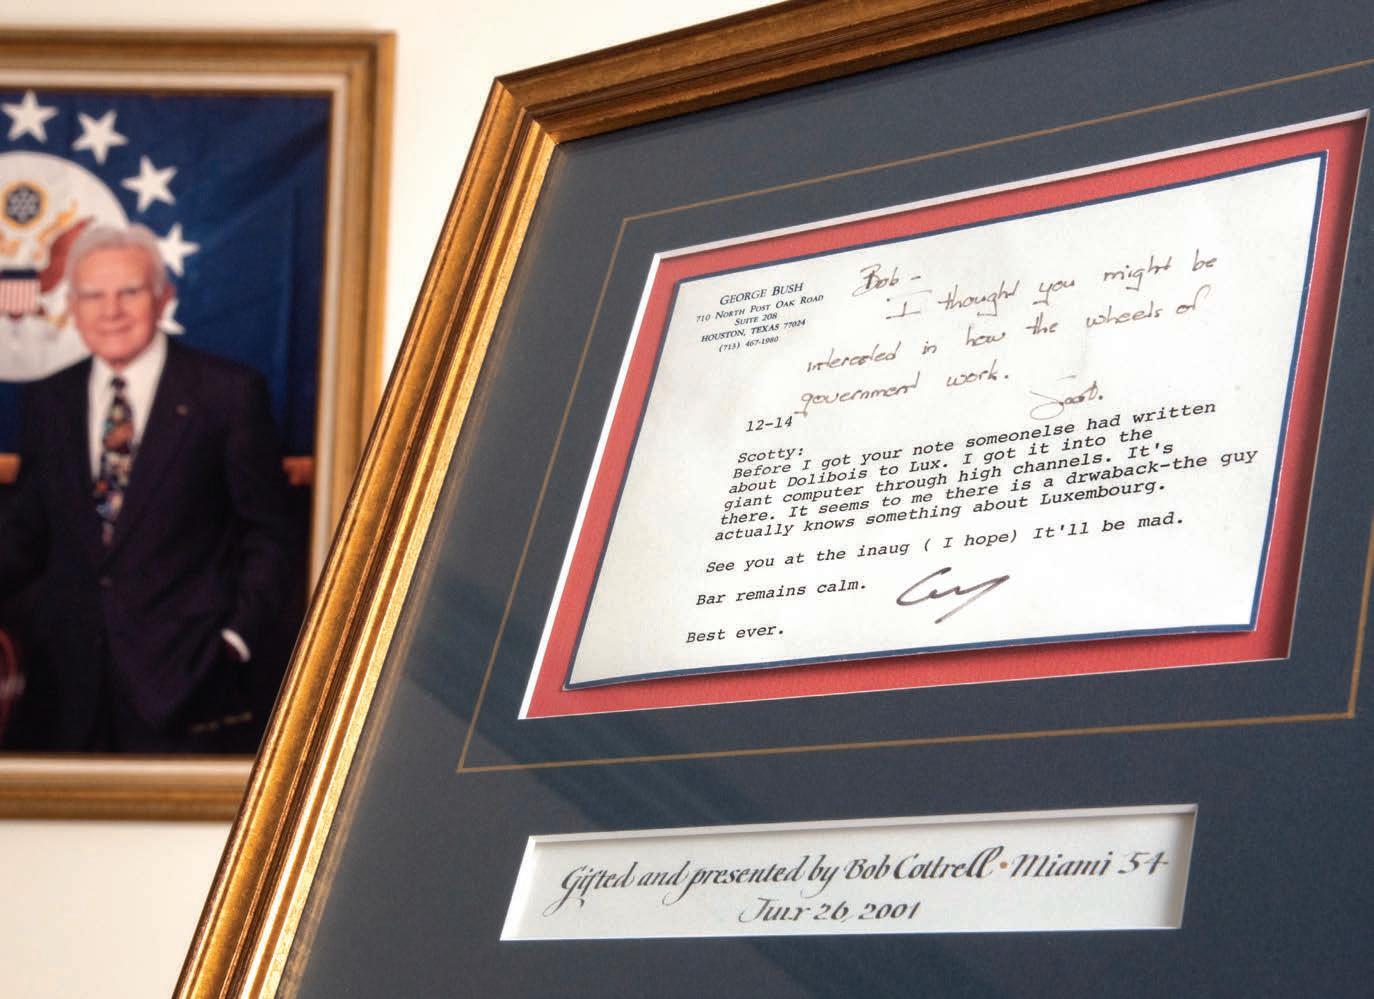 GEORGE BUSH
710 NORTH POST OAK ROAD
SUITE 208
HOUSTON, TEXAS 77024
(713) 467-1980
Bob -
I thought you might be
interested in how the wheels of
government work.
Scott.
12-14
Scotty:
Before I got your note someonelse had written
about Dolibois to Lux. I got it into the
giant computer through high channels. It's
there. It seems to me there is a drwaback-the guy
actually knows something about Luxembourg.
See you at the inaug ( I hope) It'll be mad.
Bar remains calm.
Best ever.
Gifted and presented by Bob Cottrell • Miami 54
July 26, 2001